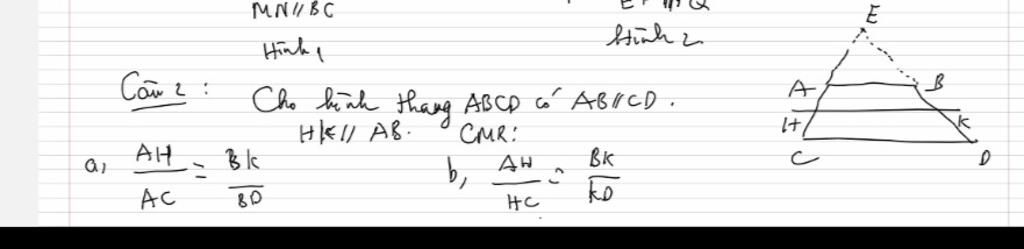 MN//BC
Hình 1
Hình 2
Câu 2: Cho hình thang ABCD có AB//CD.
HK// AB. CMR:
a, AH/AC = BK/BD
b, AH/HC = BK/KD
E
A B
H K
C D